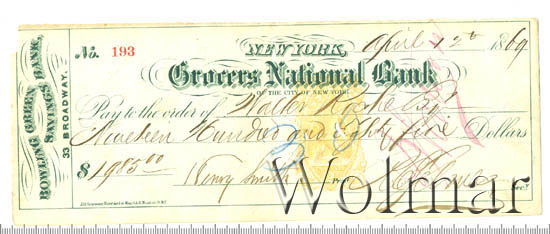 BOWLING GREEN SAVINGS BANK,
33 BROADWAY.
No. 193
NEW YORK, April 12th 1869
Grocers National Bank
OF THE CITY OF NEW YORK
Pay to the order of Walter Esq
Nineteen Hundred and Eighty five Dollars
$ 1985.00 Henry Smith Pres. Sec.y
Wolmar